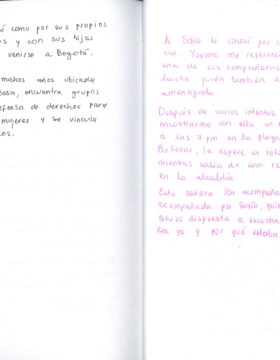 í como por sus propios
s y con sus hijos
venirse a Bogotá.
muchos años ubicada
osa, encuentra grupos
efensa de derechos para
mujeres y se vincula
os.
A Sofía la conocí por c
cia. Yovana me referenc
una de sus compañeras
lucha quién también e
amenazada.
Después de varios intentos
encontrarme con ella un
a las 7 pm en la plaza
Bolívar, la espere
mientras salía de una re
en la alcaldía.
Esta señora iba acompaña
acompañada por Sofía, quie
estuvo dispuesta a escucha
era yo y por qué estaba